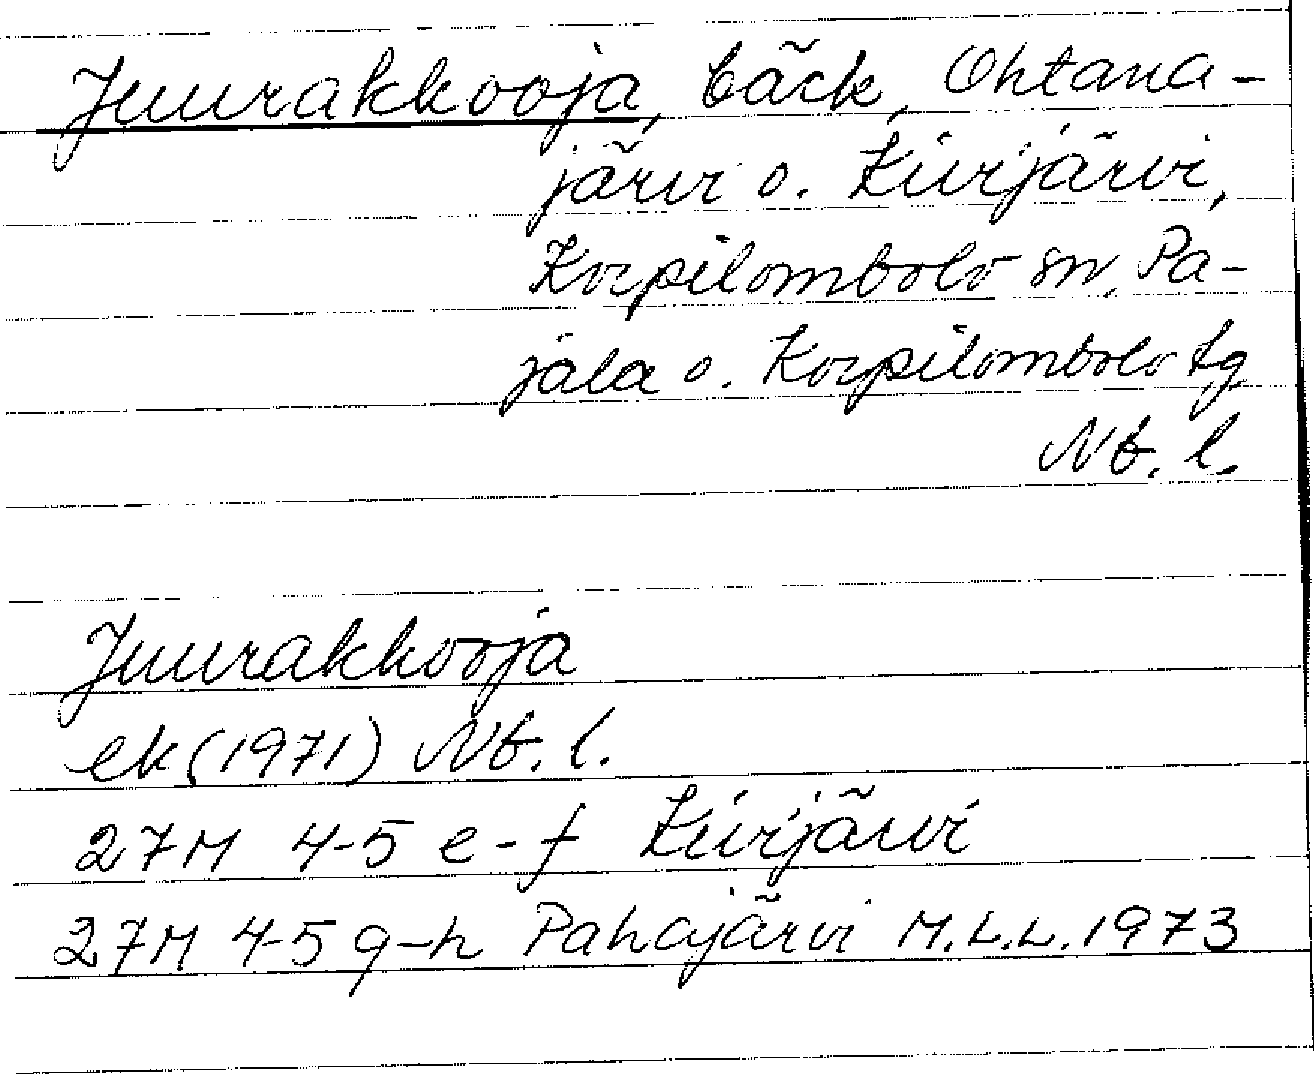 Juurakkooja, bäck, Ohtana-
järvi o. Kivijärvi,
Korpilombolo sn, Pa-
jala o. Korpilombolo tg
Nb. l.
Juurakkooja
ek (1971) Nb. l.
27M 4-5 e-f Kivijärvi
27M 4-5 g-h Pahajärvi M.L.L. 1973